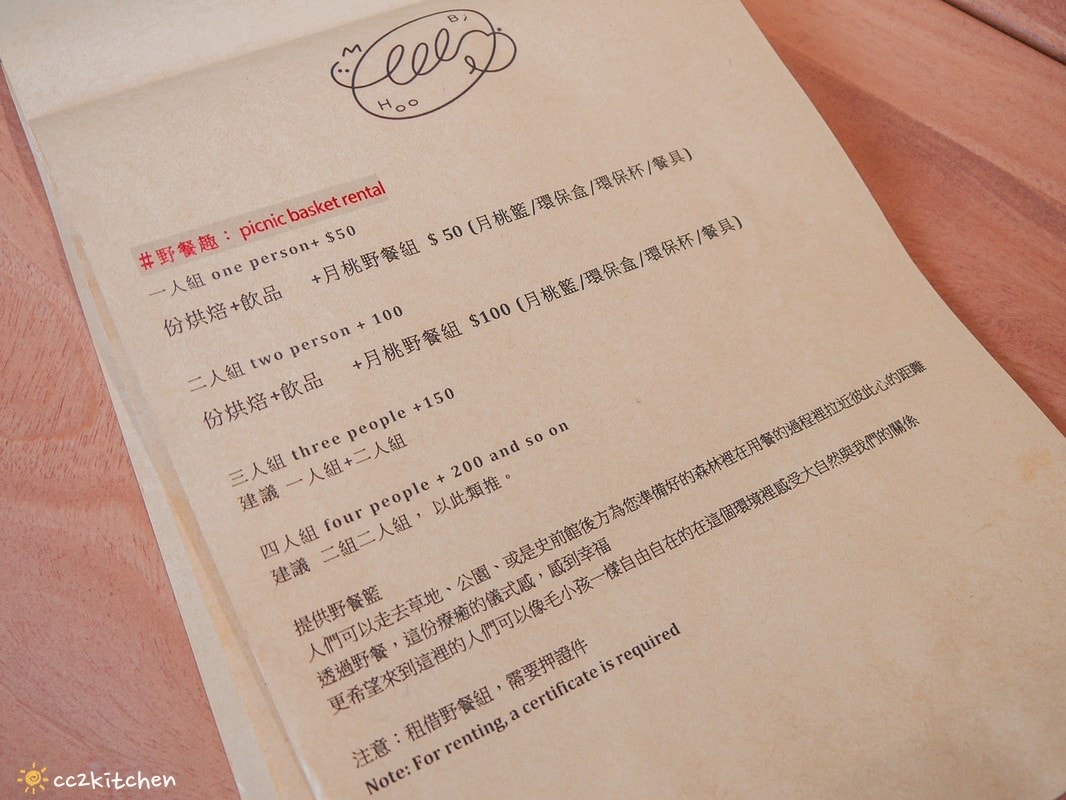 By
Hoo
#野餐趣： picnic basket rental
一人組 one person+ $50
份烘焙+飲品 +月桃野餐組 $ 50 (月桃籃/環保盒/環保杯/餐具)
二人組 two person + 100
份烘焙+飲品 +月桃野餐組 $100 (月桃籃/環保盒/環保杯/餐具)
三人組 three people +150
建議 一人組+二人組
四人組 four people + 200 and so on
建議 二組二人組， 以此類推。
提供野餐籃
人們可以走去草地、公園、或是史前館後方為您準備好的森林裡在用餐的過程裡拉近彼此心的距離
透過野餐，這份療癒的儀式感，感到幸福
更希望來到這裡的人們可以像毛小孩一樣自由自在的在這個環境裡感受大自然與我們的關係
注意：租借野餐組，需要押證件
Note: For renting, a certificate is required
cc2kitchen